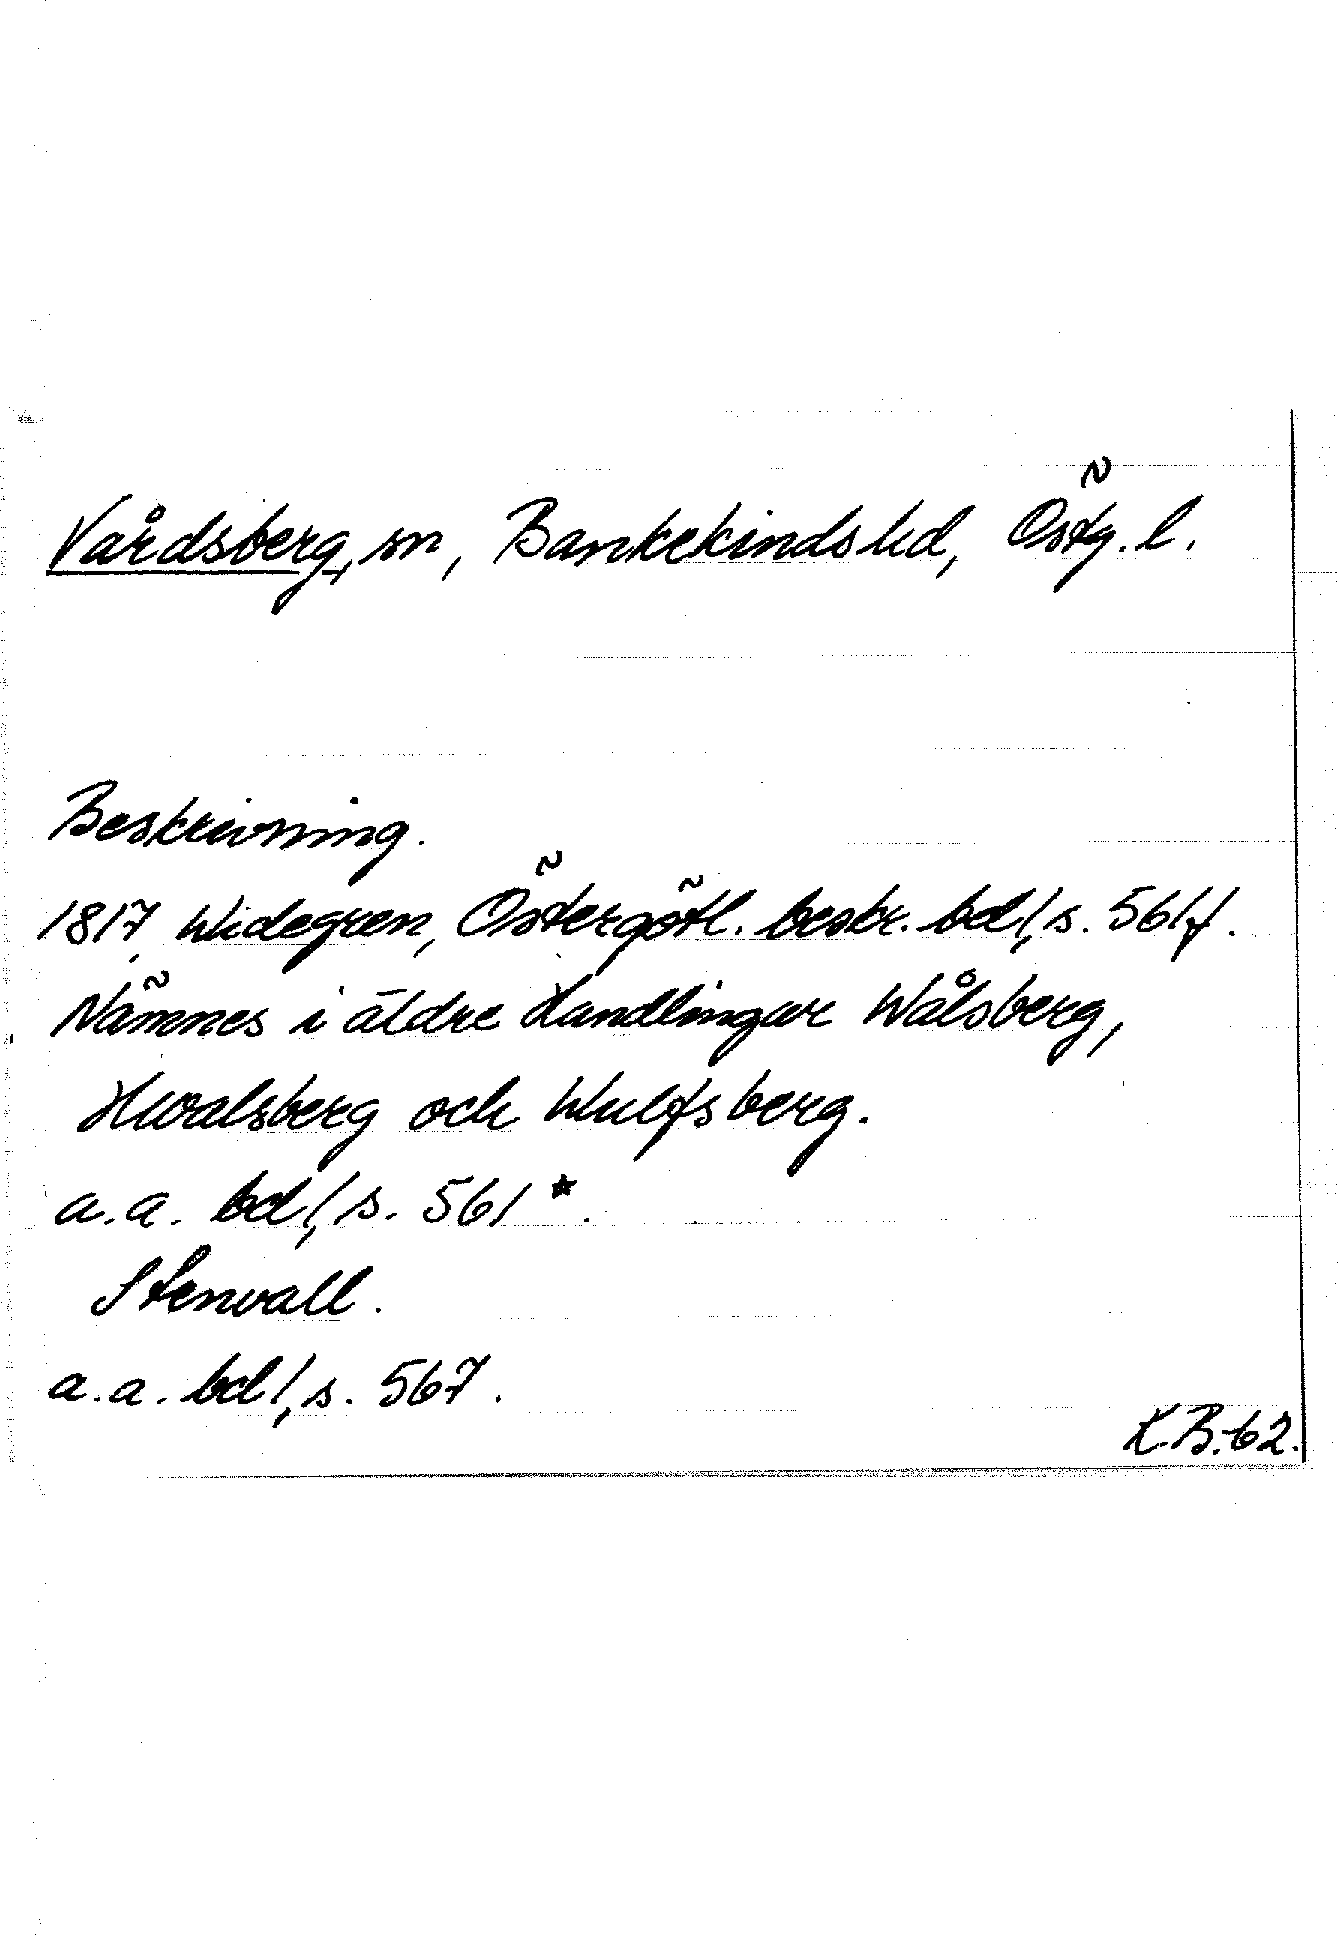 Vårdsberg, sn, Bankekinds hd, Östg. l.
Beskrivning.
1817 Widegren, Östergötl. beskr. bd 1, s. 561 f.
Nämnes i äldre Handlingar Wålsberg,
Hwalsberg och Wulfsberg.
a.a. bd 1, s. 561 *.
Stenvall.
a.a. bd 1, s. 567.
K.B.-62.